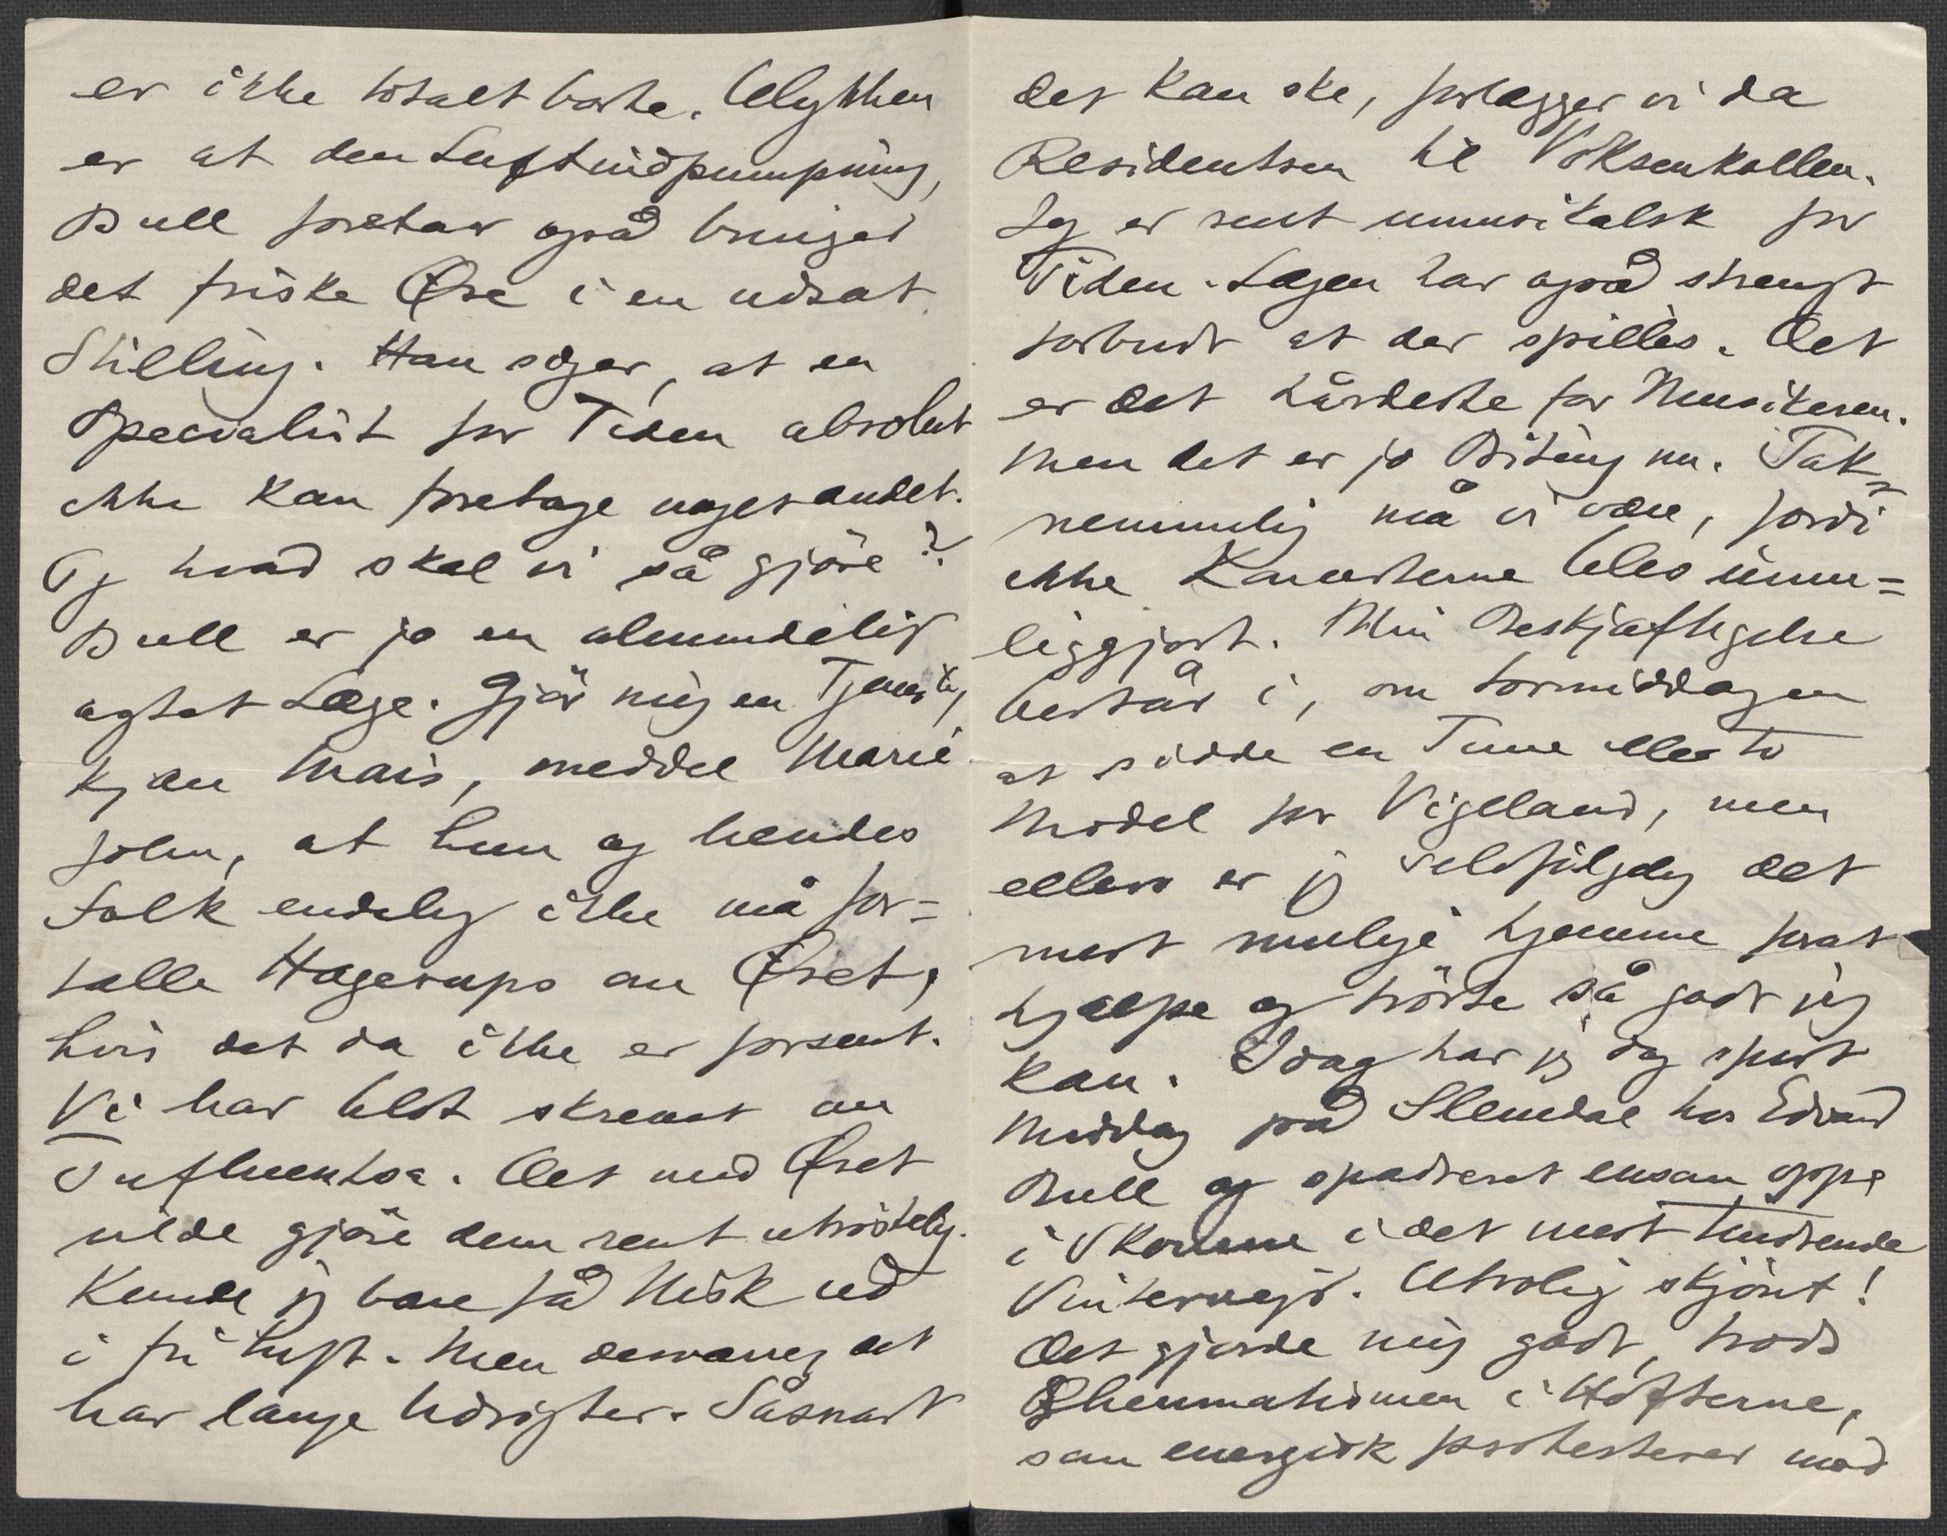 er ikke totalt borte. Ulykken
er at den Luftindpumpning,
Bull foretar også bringer
det friske Øre i en udsat
Stilling. Han siger, at en
Specialist for Tiden absolut
ikke kan foretage noget andet.
Og hvad skal vi så gjöre?
Bull er jo en almindelig
agtet Læge. Gjör mig en Tjeneste,
kjære Mais, meddel Marie
John, at hun og hendes
Folk endelig ikke må for=
tælle Hagerups om Øret,
hvis det da ikke er forsent.
Vi har blot skrevet om
Influentsa. Det med Øret
vilde gjöre dem rent utröstelig.
Kunde jeg bare få Nisk ud
i fri Luft. Men desværre det
har lange Udsigter. Såsnart
det kan ske, forlægger vi da
Residentsen til Voksenkollen.
Jeg er rent umusikalsk for
Tiden. Lægen har også strengt
forbudt at der spilles. Det
er det hårdeste for Musikeren.
Men det er jo Biting nu. Tak=
nemmelig må vi være, fordi
ikke Koncerterne blev umu=
liggjort. Min Beskjæftigelse
består i, om Formiddagen
at sidde en Time eller to
Model for Vigeland, men
ellers er jeg selvfölgelig det
mest mulige hjemme forat
hjælpe og tröste så godt jeg
kan. Idag har jeg dog spist
Middag på Slemdal hos Edvard
Bull og spadseret ensom oppe
i Skovene i det mest tindrende
Vintervejr. Utrolig skjönt!
Det gjorde mig godt, trods
Rheumatismen i Höfterne,
som energisk protesterer mod